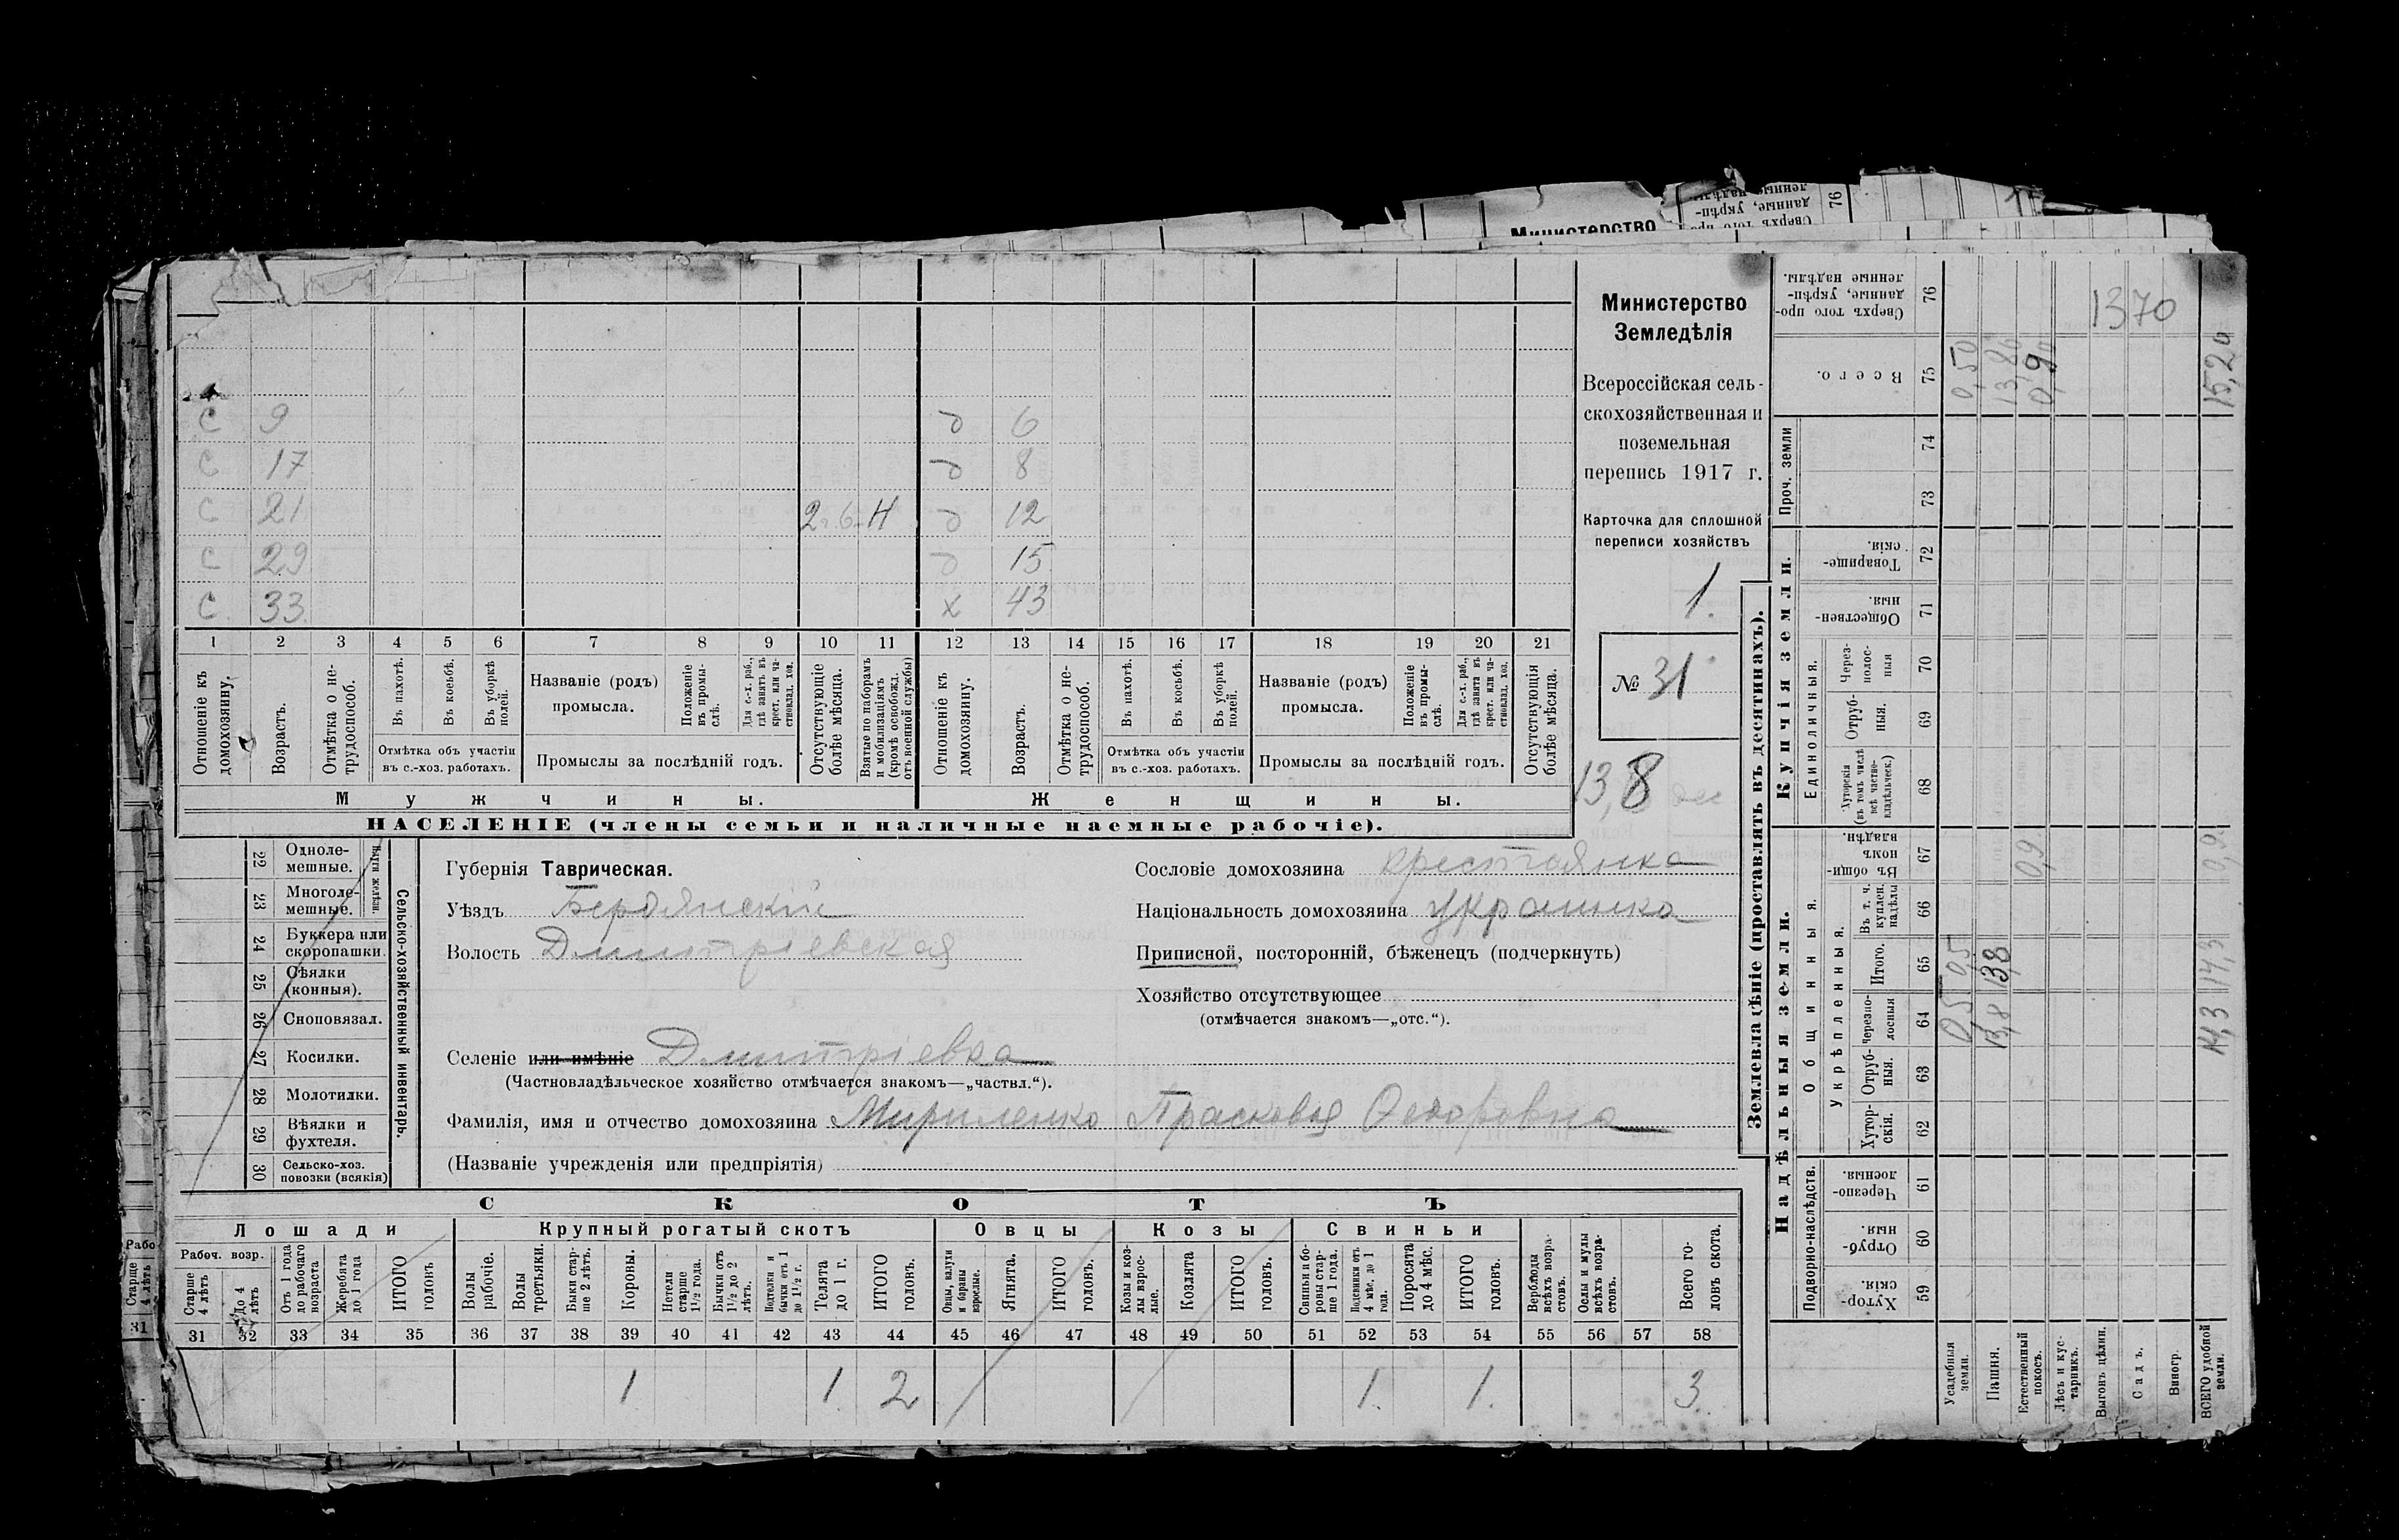 Министерство
Сверхъ того про-
данные, укрѣп-
76
Министерство
Земледѣлія
Всероссійская сель-
скохозяйственная и
поземельная
перепись 1917 г.
Карточка для сплошной
переписи хозяйствъ
1.
№ 31
13,8
с 9 д 6
с 17 д 8
с 21 д 12
с 29 д 15
с 33 х 43
1 2 3 4 5 6 7 8 9 10 11 12 13 14 15 16 17 18 19 20 21
Отношеніе къ домохозяину.
Возрастъ.
Отмѣтка о не-трудоспособ.
Въ пахотѣ.
Въ косьбѣ.
Въ уборкѣ полей.
Отмѣтка объ участіи
въ с.-хоз. работахъ.
Названіе (родъ)
промысла.
Положеніе въ промы-слѣ.
Для с.-х. раб., гдѣ занятъ въ крест. или ча-стновлад. хоз.
Промыслы за послѣдній годъ.
Отсутствующіе болѣе мѣсяца.
Взятые по наборамъ и мобилизаціямъ (кромѣ освобожд. отъ военной службы)
Отношеніе къ домохозяину.
Возрастъ.
Отмѣтка о не-трудоспособ.
Въ пахотѣ.
Въ косьбѣ.
Въ уборкѣ полей.
Отмѣтка объ участіи
въ с.-хоз. работахъ.
Названіе (родъ)
промысла.
Положеніе въ промы-слѣ.
Для с.-х. раб., гдѣ занята въ крест. или ча-стновлад. хоз.
Промыслы за послѣдній годъ.
Отсутствующія болѣе мѣсяца.
Мужчины.
Женщины.
НАСЕЛЕНІЕ (члены семьи и наличные наемные рабочіе).
22 Одноле-мешные.
23 Многоле-мешные.
24 Буккера или скоропашки.
25 Сѣялки (конныя).
26 Сноповязал.
27 Косилки.
28 Молотилки.
29 Вѣялки и фухтеля.
30 Сельско-хоз. повозки (всякія)
Сельско-хозяйственный инвентарь.
Губернія Таврическая.
Уѣздъ Бердянскій
Волость Дмитріевская
Сословіе домохозяина крестьянка
Національность домохозяина украинка
Приписной, посторонній, бѣженецъ (подчеркнуть)
Хозяйство отсутствующее
(отмѣчается знакомъ—„отс.“).
Селеніе или имѣніе Дмитріевка
(Частновладѣльческое хозяйство отмѣчается знакомъ—„частвл.“).
Фамилія, имя и отчество домохозяина Мириленко Прасковья Федоровна
(Названіе учрежденія или предпріятія)
СКОТЪ
Лошади
Крупный рогатый скотъ
Овцы
Козы
Свиньи
Рабоч. возр.
Старше 4 лѣтъ
До 4 лѣтъ
Отъ 1 года до рабочаго возраста
Жеребята до 1 года
ИТОГО головъ
Волы рабочіе.
Волы третьяки.
Быки стар-ше 2 лѣтъ.
Коровы.
Нетели старше 1½ года.
Бычки отъ 1½ до 2 лѣтъ.
Подтелки и бычки отъ 1 до 1½ г.
Телята до 1 г.
ИТОГО головъ.
Овцы, валухи и бараны взрослые.
Ягнята.
ИТОГО головъ.
Козы и коз-лы взрос-лые.
Козлята
ИТОГО головъ.
Свиньи и бо-ровы стар-ше 1 года.
Подсвинки отъ 4 мѣс. до 1 года.
Поросята до 4 мѣс.
ИТОГО головъ.
Верблюды всѣхъ возра-стовъ.
Ослы и мулы всѣхъ возра-стовъ.
Всего го-ловъ скота.
31 32 33 34 35 36 37 38 39 40 41 42 43 44 45 46 47 48 49 50 51 52 53 54 55 56 57 58
1 1 2 1. 1. 3.
Рабо
Старше 4 лѣтъ
31
Землевладѣніе (проставлять въ десятинахъ).
Сверхъ того про-данные, укрѣп-ленные надѣлы. 76
1370
Всего. 75
0,50
13,80
0,90
15,20
Проч. земли
74
73
Купчія земли.
Товарище-скія. 72
Обществен-ныя. 71
Единоличныя.
Через-полос-ныя 70
Отруб-ныя. 69
Хуторскія (въ томъ числѣ всѣ частно-владѣльческ.) 68
Надѣльныя земли.
Общинныя.
Въ общи-номъ владѣн. 67
0,9
0,9
Укрѣпленныя.
Въ т. ч. куплен. надѣлы 66
Итого. 65
0,5
13,8
14,3
черезпо-лосныя 64
0,5
13,8
14,3
Отруб-ныя. 63
Хутор-скія. 62
Подворно-наслѣдств.
Черезпо-лосныя. 61
Отруб-ныя. 60
Хутор-скія. 59
Усадебныя земли.
Пашня.
Естественный покосъ.
Лѣсъ и кус-тарникъ.
Выгонъ цѣлин.
Садъ.
Виногр.
ВСЕГО удобной земли.